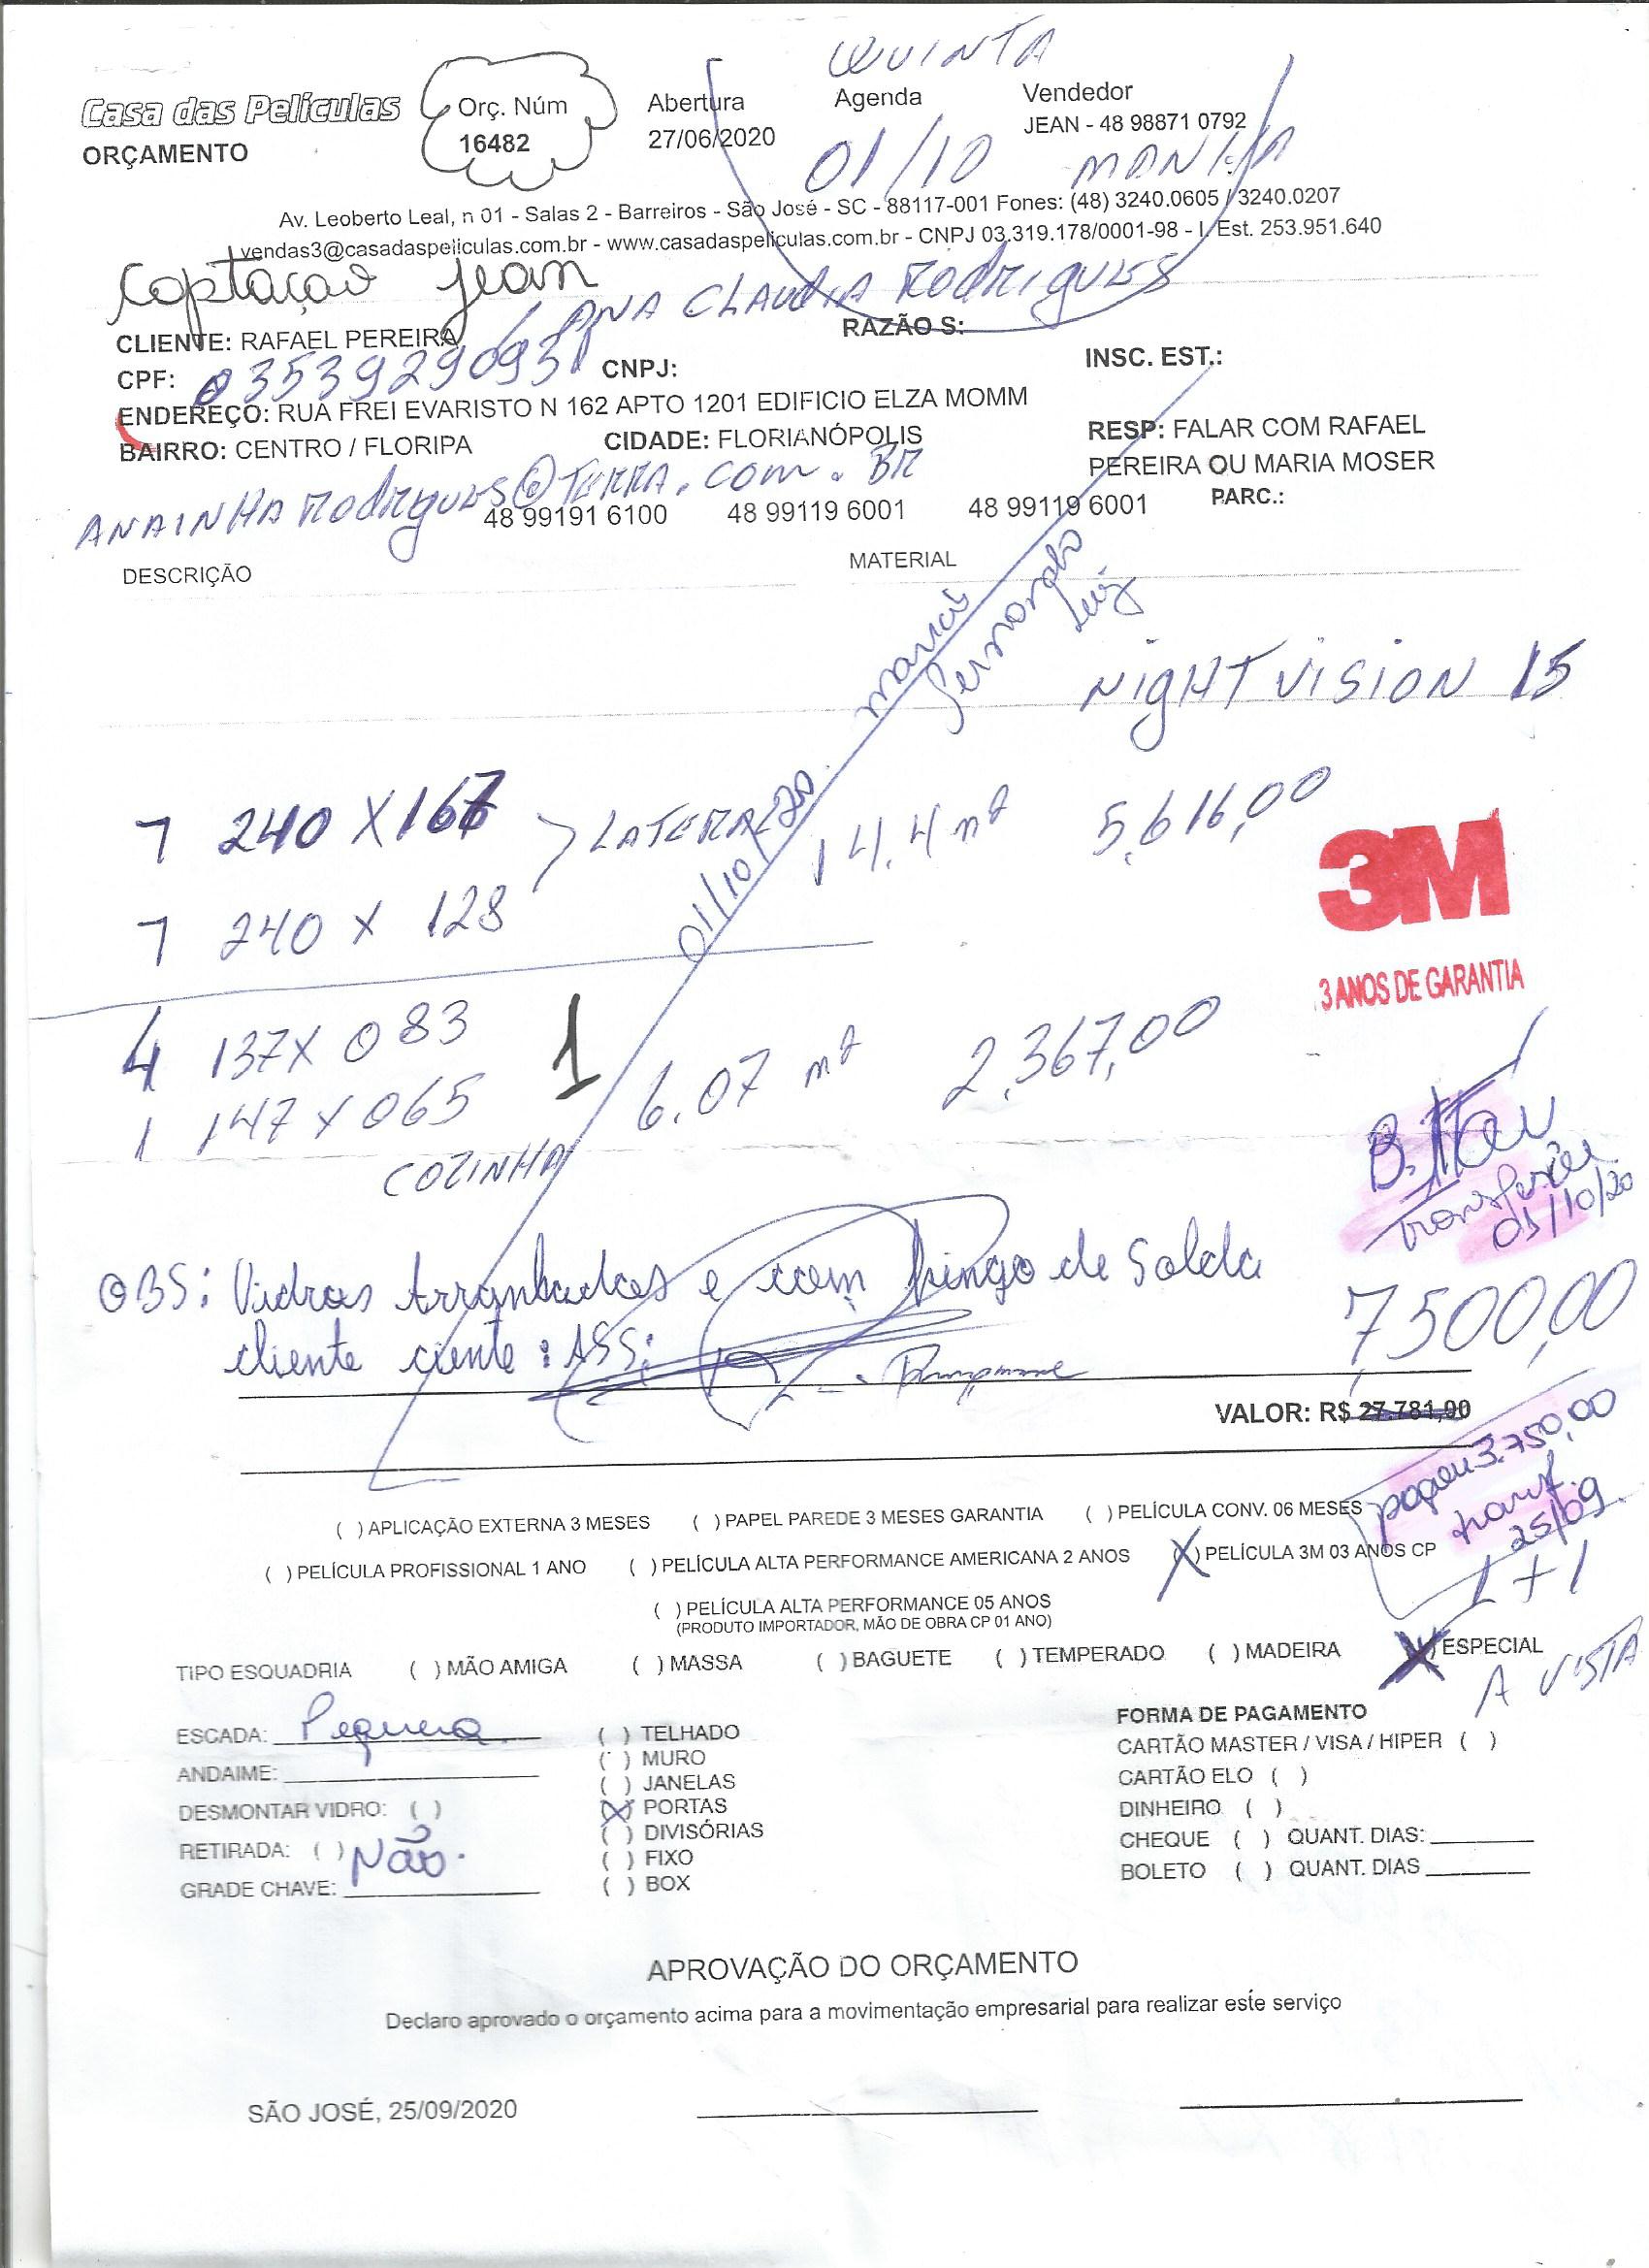 QUINTA
Casa das Películas
ORÇAMENTO
Orç. Núm
16482
Abertura
27/06/2020
Agenda
01/10
Vendedor
JEAN - 48 98871 0792
Av. Leoberto Leal, n 01 - Salas 2 - Barreiros - São José - SC - 88117-001 Fones: (48) 3240.0605 / 3240.0207
vendas3@casadaspeliculas.com.br - www.casadaspeliculas.com.br - CNPJ 03.319.178/0001-98 - I. Est. 253.951.640
Captação Jean
/ ANA CLAUDIA RODRIGUES
CLIENTE: RAFAEL PEREIRA
RAZÃO S:
CPF: 03539290931
CNPJ:
INSC. EST.:
ENDEREÇO: RUA FREI EVARISTO N 162 APTO 1201 EDIFICIO ELZA MOMM
BAIRRO: CENTRO / FLORIPA
CIDADE: FLORIANÓPOLIS
RESP: FALAR COM RAFAEL
PEREIRA OU MARIA MOSER
ANAINHARODRIGUES@TERRA.COM.BR
48 99191 6100 48 99119 6001 48 99119 6001
PARC.:
DESCRIÇÃO
MATERIAL
Fernando
Luiz
01/10/20
NIGHT VISION 15
7 240 X 167
LATERAL
14.4 m²
5.616,00
7 240 X 128
3M
3 ANOS DE GARANTIA
4 137X 083
1
6.07 m²
2.367,00
1 147 X 065
COZINHA
B. Itau
01/10/20
OBS: Vidros Arranhados e com Pingo de Solda
cliente ciente: ASS:
7,500,00
VALOR: R$ 27.781,00
pagou 3.750,00
transf.
25/09
1+1
A VISTA
( ) APLICAÇÃO EXTERNA 3 MESES ( ) PAPEL PAREDE 3 MESES GARANTIA ( ) PELÍCULA CONV. 06 MESES
( ) PELÍCULA PROFISSIONAL 1 ANO ( ) PELÍCULA ALTA PERFORMANCE AMERICANA 2 ANOS (X) PELÍCULA 3M 03 ANOS CP
( ) PELÍCULA ALTA PERFORMANCE 05 ANOS
(PRODUTO IMPORTADOR, MÃO DE OBRA CP 01 ANO)
TIPO ESQUADRIA ( ) MÃO AMIGA ( ) MASSA ( ) BAGUETE ( ) TEMPERADO ( ) MADEIRA (X) ESPECIAL
ESCADA: Pequena
ANDAIME:
DESMONTAR VIDRO: ( )
RETIRADA: ( ) Não
GRADE CHAVE:
( ) TELHADO
( ) MURO
( ) JANELAS
(X) PORTAS
( ) DIVISÓRIAS
( ) FIXO
( ) BOX
FORMA DE PAGAMENTO
CARTÃO MASTER / VISA / HIPER ( )
CARTÃO ELO ( )
DINHEIRO ( )
CHEQUE ( ) QUANT. DIAS:
BOLETO ( ) QUANT. DIAS
APROVAÇÃO DO ORÇAMENTO
Declaro aprovado o orçamento acima para a movimentação empresarial para realizar este serviço
SÃO JOSÉ, 25/09/2020